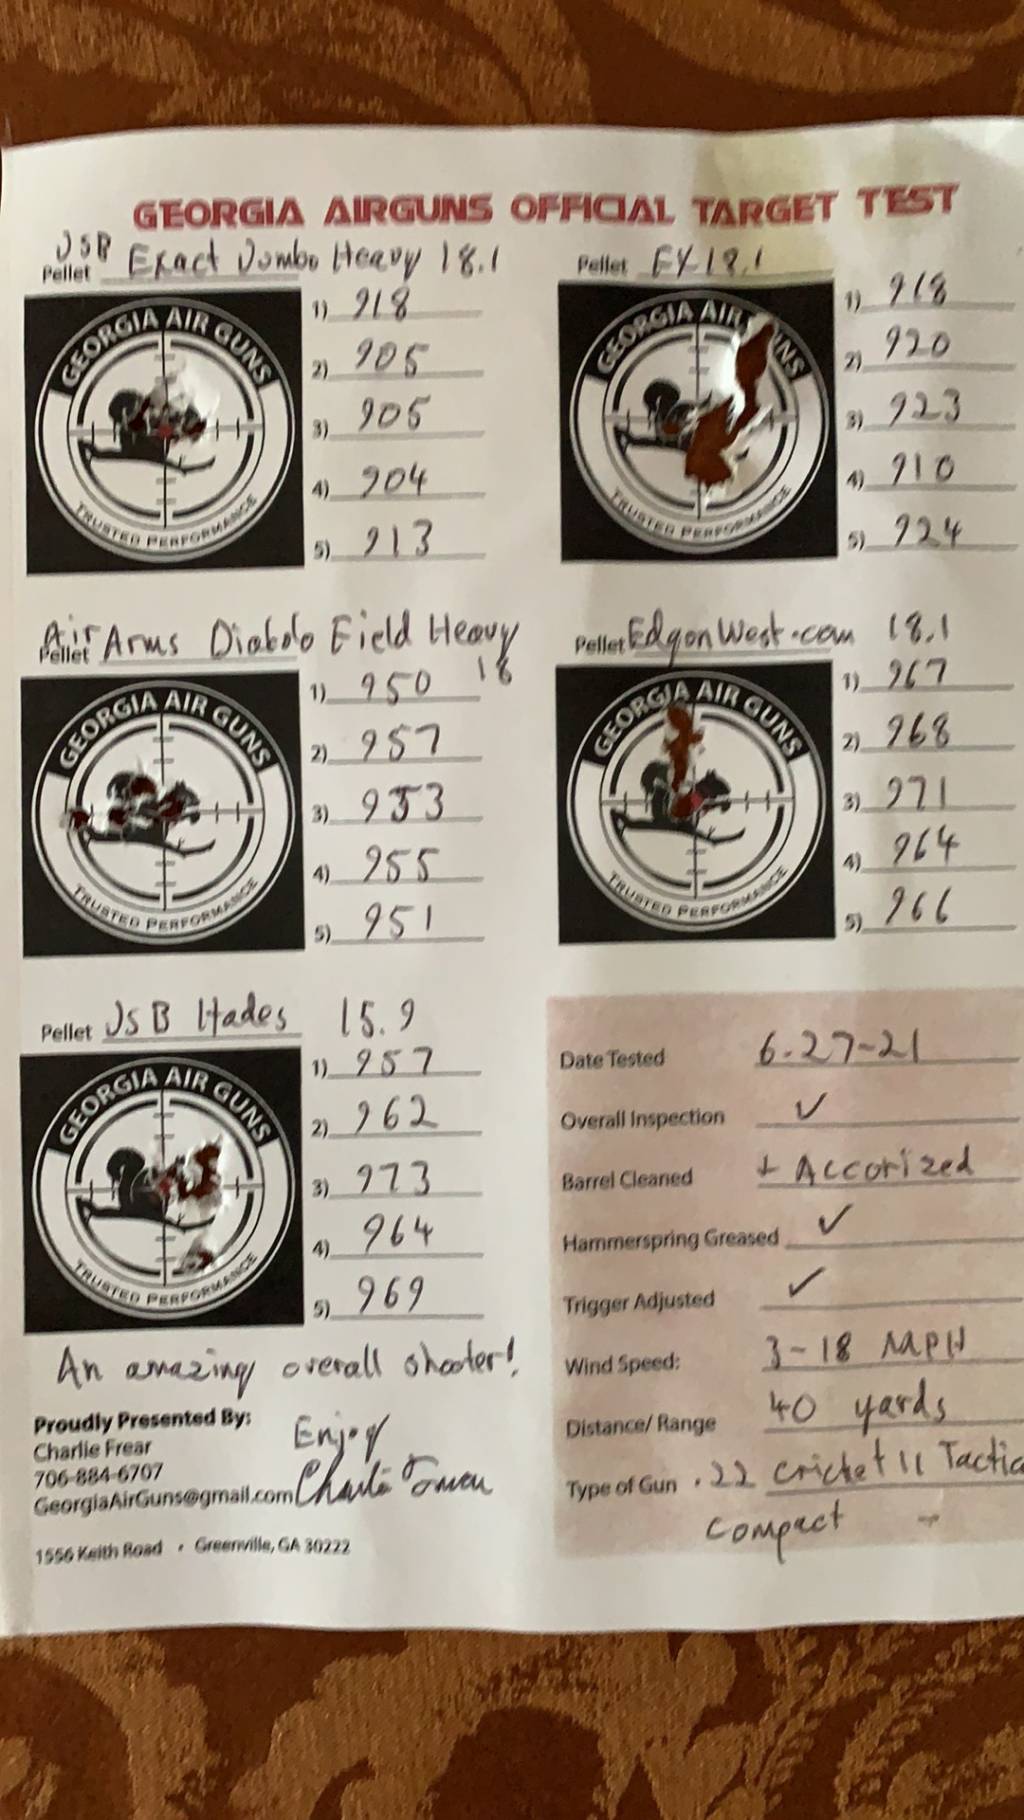 GEORGIA AIRGUNS OFFICIAL TARGET TEST
Pellet JSB Exact Jumbo Heavy 18.1
GEORGIA AIR GUNS
TRUSTED PERFORMANCE
1) 918
2) 905
3) 905
4) 904
5) 913
Pellet FX 18.1
GEORGIA AIR GUNS
TRUSTED PERFORMANCE
1) 918
2) 920
3) 923
4) 910
5) 924
Pellet Air Arms Diabolo Field Heavy
18
GEORGIA AIR GUNS
TRUSTED PERFORMANCE
1) 950
2) 957
3) 953
4) 955
5) 951
Pellet EdgonWest.com 18.1
GEORGIA AIR GUNS
TRUSTED PERFORMANCE
1) 967
2) 968
3) 971
4) 964
5) 966
Pellet JSB Hades 15.9
GEORGIA AIR GUNS
TRUSTED PERFORMANCE
1) 957
2) 962
3) 973
4) 964
5) 969
Date Tested 6-27-21
Overall Inspection ✓
Barrel Cleaned + Accorized
Hammerspring Greased ✓
Trigger Adjusted ✓
Wind Speed: 3-18 MPH
Distance/ Range 40 yards
Type of Gun .22 Cricket II Tactic
compact
An amazing overall shooter!
Proudly Presented By:
Charlie Frear
706-884-6707
GeorgiaAirGuns@gmail.com
Enjoy
Charlie
1556 Keith Road • Greenville, GA 30222